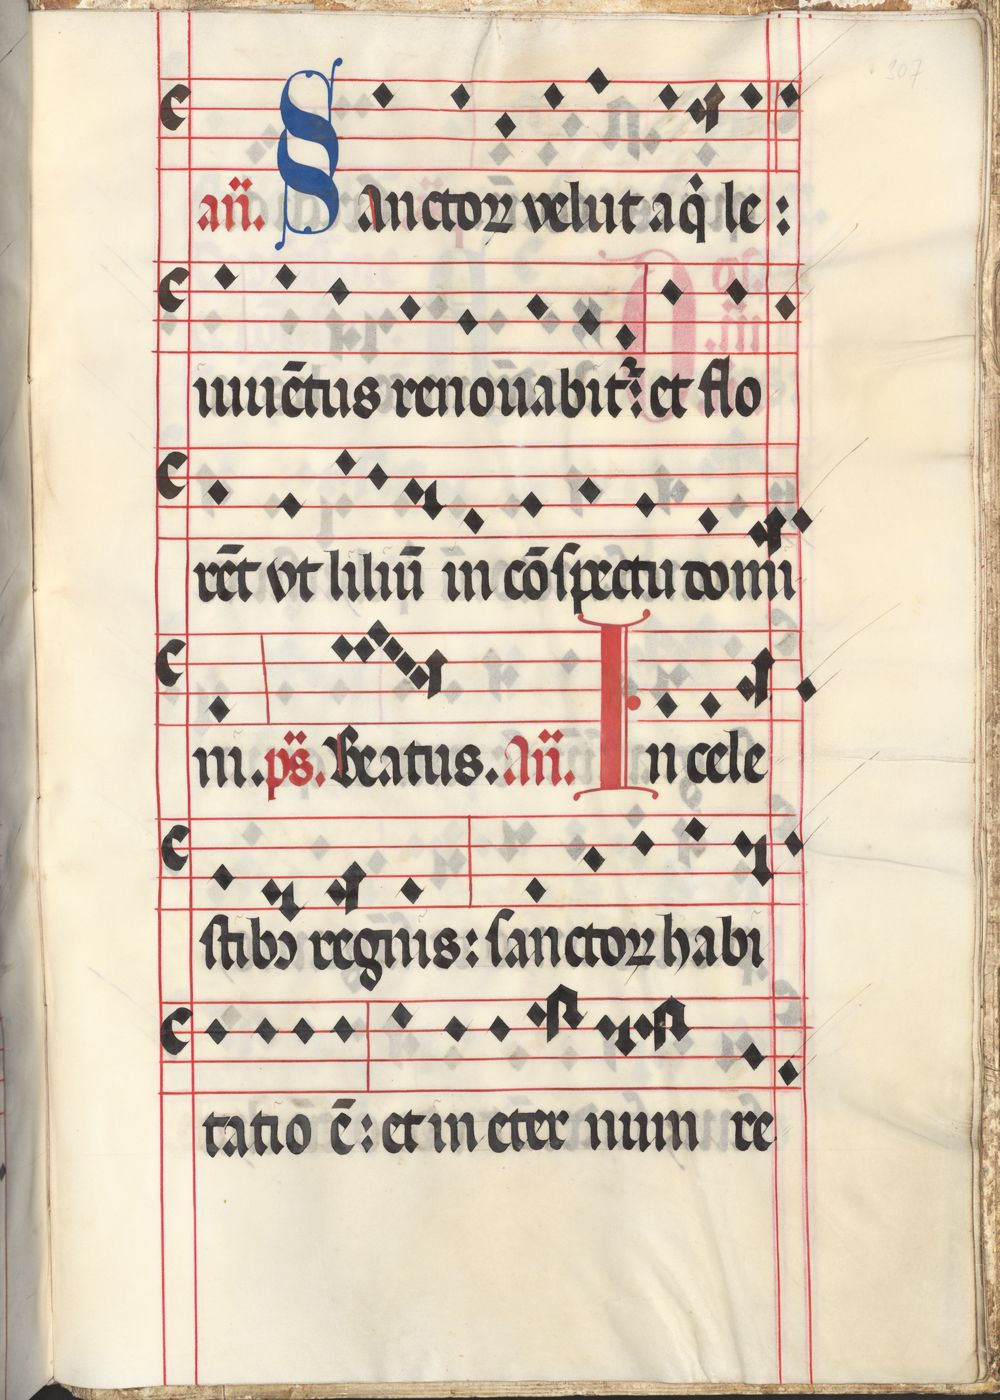 307
an̄. SAnctoꝝ velut aq̇ le :
iuuētus renouabitᷣ: et flo
rēt vt liliū in cōspectu domi
ni. ps̄. Beatus. An̄. In cele
stibꝰ regnis: sanctoꝝ habi
tatio ē: et in eter num re